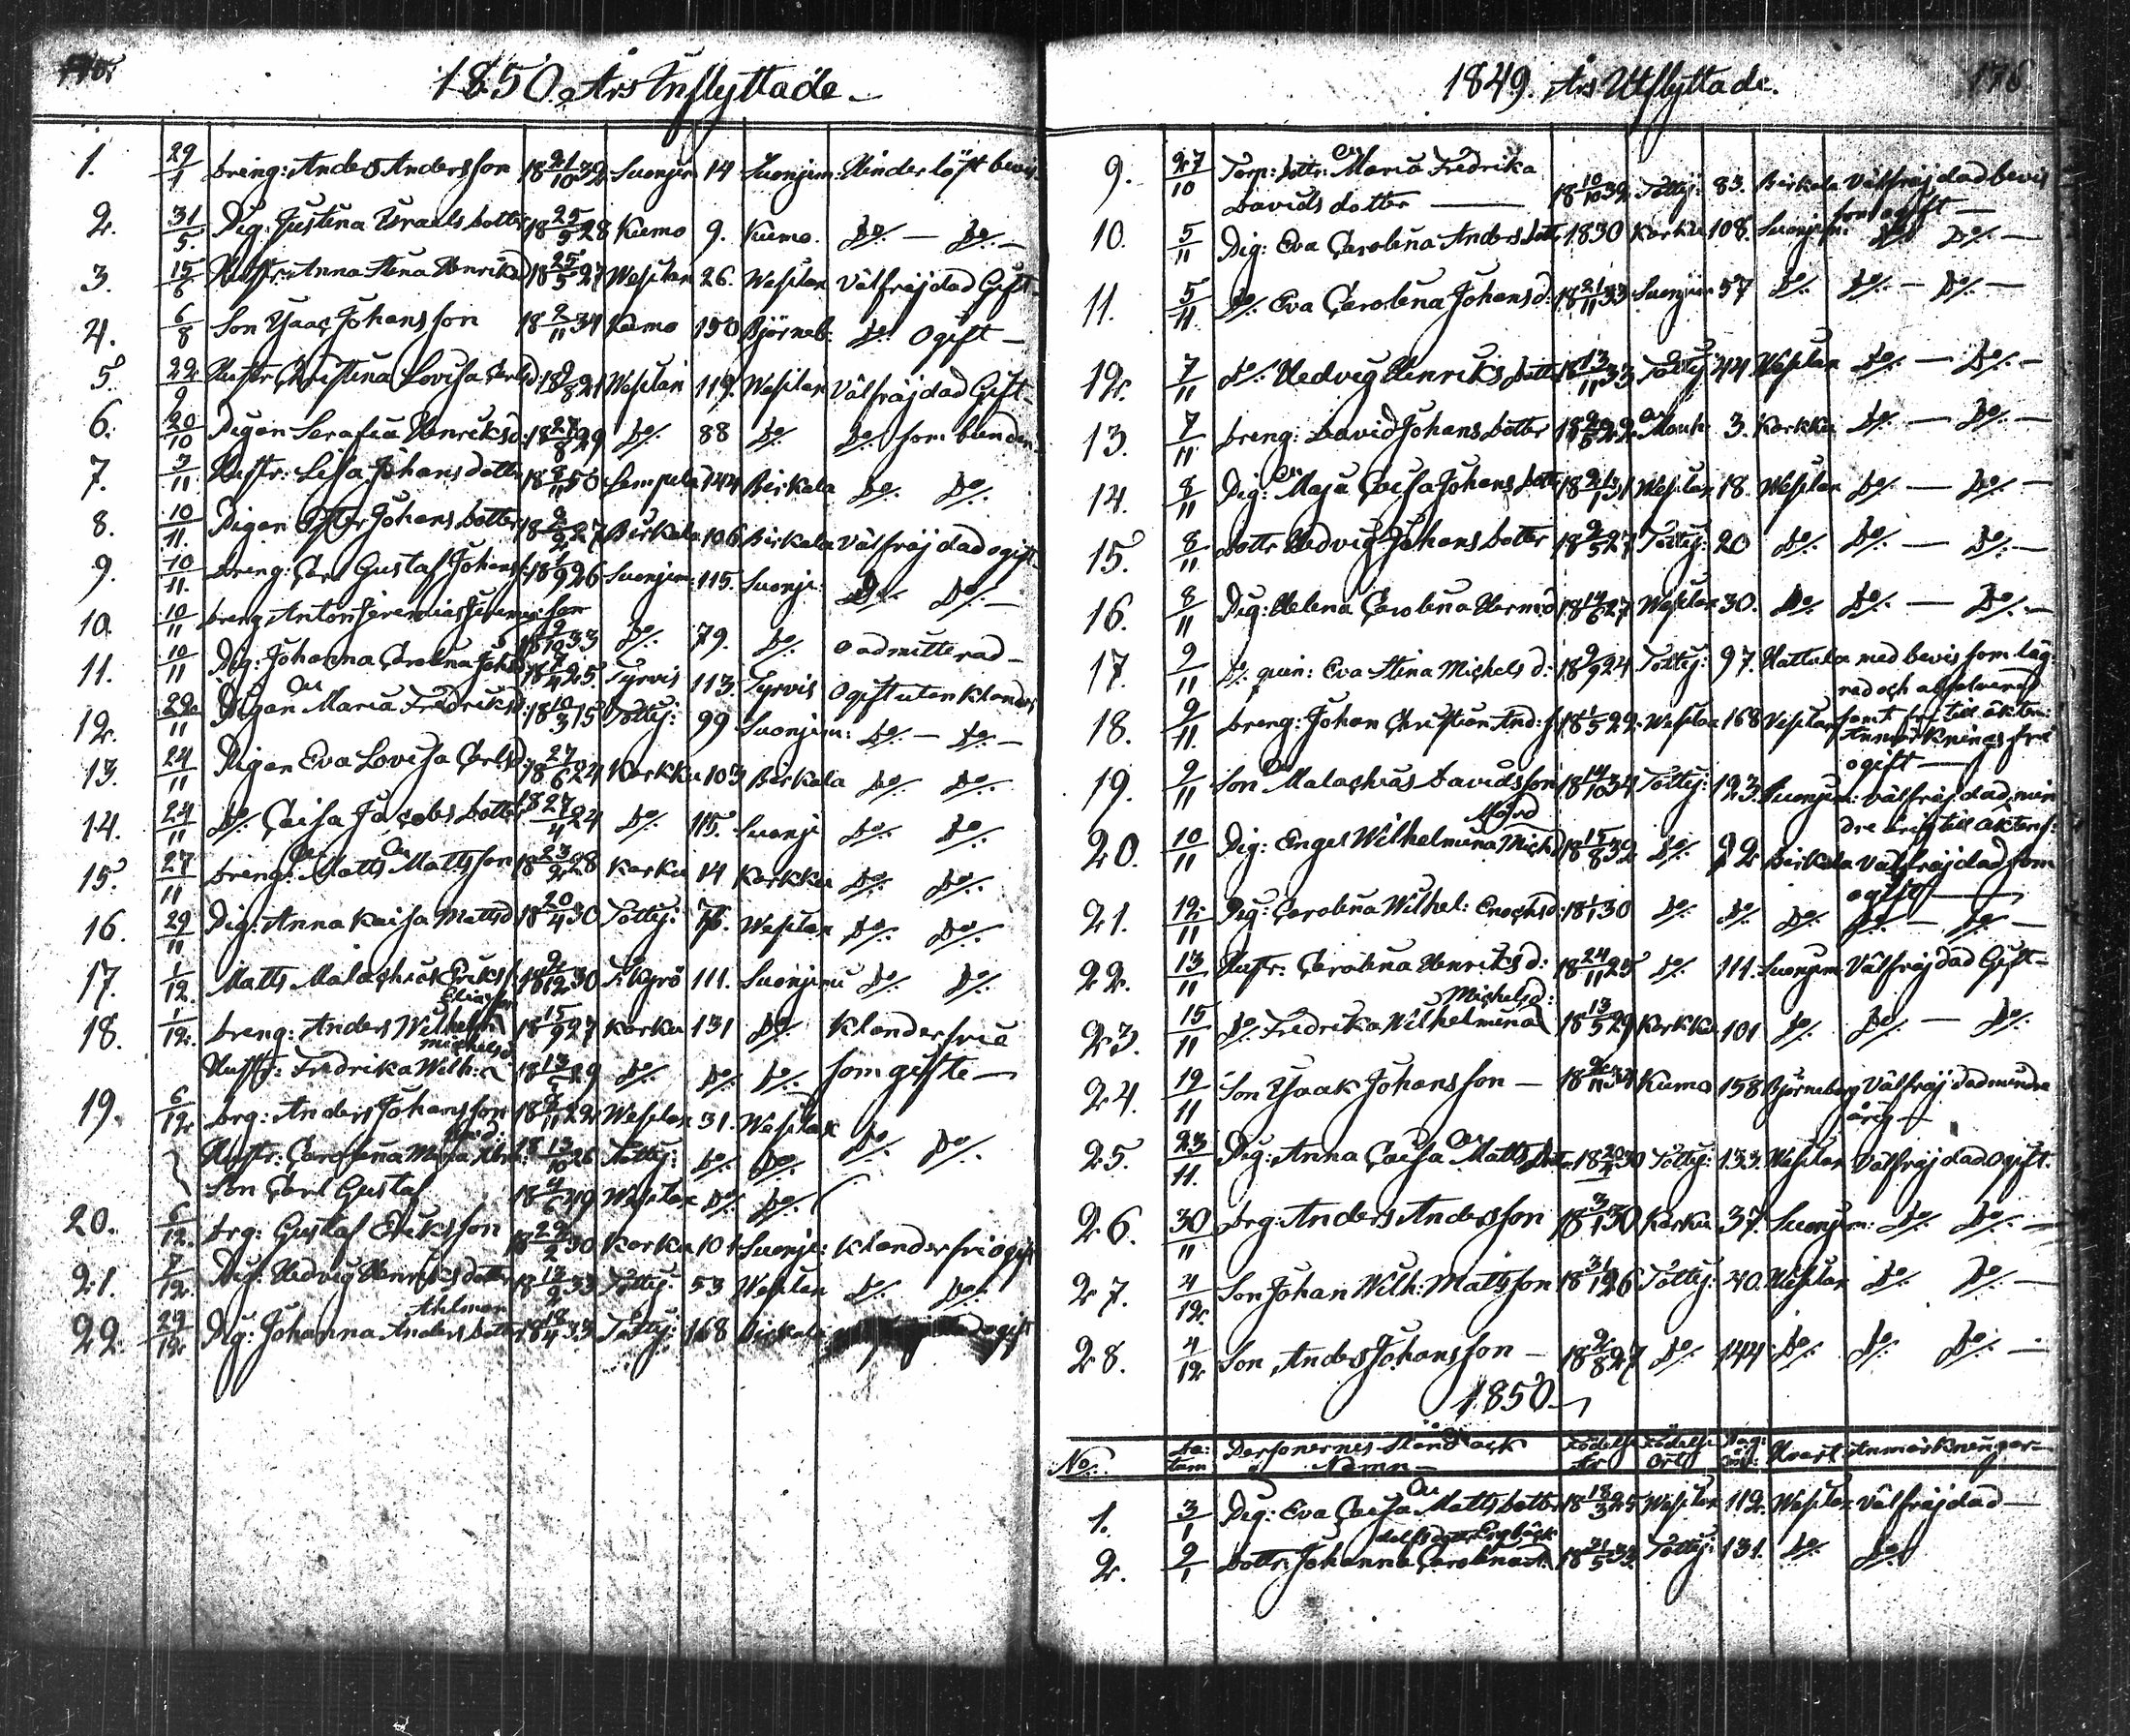 1850 Års Inflyttade
1. 29/1 Dreng: Anders Andersson 18 21/10 32 Suonjem 14 Suonjem: Hinderlöst bevis
2. 31/5 Pig. Justina Israels dotter 18 25/5 28 Kumo 9. Kumo. Do Do
3. 15/6 Hustr: Anna Stina Henriksd 18 25/5 27 Wesilax 26. Wesilax Välfräjdad Gift
4. 6/8 Son Isaac Johansson 18 2/11 34 Kumo 150 Björneb. Do Ogift
5. 22/9 Hustr Christina Lovisa Carlsd: 18 9/8 21 Wesilax 119. Wesilax Välfräjdad Gift
6. 20/10 Pigan Serafia Henriksd: 18 27/8 29 Do 88 Do Do som bunden
7. 3/11 Hustr: Lisa Johansdotter Lempela 144 Birkala Do Do
8. 10/11. Pigan Ester Johans dotter 18 2/2 27 Birkala 106 Birkala Välfräjdad ogift
9. 10/11. Dreng: Carl Gustaf Johanss: 18 1/9 26 Suonjem: 115. Suonje: Do Do
10. 10/11 Dreng Anton Jeremias Jeremiasson 18 9/10 33 Do 79. Do oadmitterad
11. 10/11 Pig: Johanna Carolina Johsd 18 7/4 25. Tyrvis 113. Tyrvis Ogift utan klander
12. 22/11 Pigan Maria Fredriksd: 18 10/3 15 Tottij: 99 Suonjem: Do Do
13. 24/11 Pigan Eva Lovisa Carlsd: 18 27/6 24 Karkku 103 Birkala Do Do
14. 24/11 Do Caisa Jacobs dotter 18 27/4 24 Do 115. Suonj Do Do
15. 27/11 Dreng: Matts Mattsson 18 23/2 28 Karku 14 Karkku Do Do
16. 29/11 Pig: Anna Kaisa Mattsd 18 20/4 30 Tottij: Wesilax Do Do
17. 1/12. Matts Malachias Erikss 18 2/12 30 T: Kyrö 111. Suonjemi Do Do
Eliasson
18. 1/12. Dreng: Anders Wilhelm 18 15/9 27 Karku 131 Do Klanderfria
Michelsd
Hustr: Fredrika Wilh: 18 13/5 29 Do Do Do som gifte
19. 6/12 Drg: Anders Johansson 18 8/11 22 Wesilax 31. Wesilax
Hustr: Carolina Maria 18 13/10 26 Tottij: Do Do Do Do
Son Carl Gustaf 18 4/6 49 Wesilax Do Do
20. 6/12. Drg: Gustaf Eriksson 18 22/2 30 Karku 101 Suonje: Klanderfri ogift
21. 7/12. Pig: Hedvig Henriksdotter 18 13/9 33 Tottij: 53 Wesilax Do Do
Ahlman
22. 29/12 Pig: Johanna Andersdotter 18 18/4 33 Tottij: 168 Birkala ogift
1849. Års Utflyttade. 176
9. 27/10 Torp: dottr. Maria Fredrika
Davids dotter 18 10/10 32 Tottij: 83. Birkala Välfräjdad bevis
som ogift
10. 5/11 Pig: Eva Carolina Anders dottr 1830 Karku 108. Suonjem: Do Do
11. 5/11. Do Eva Carolina Johans d: 18 21/11 33 Suonjem 57 Do Do Do
12. 7/11 Do Hedvig Henriks dotter 18 13/11 33 Tottij: 44 Wesilax Do Do
13. 7/11 Dreng: David Johans dotter Mouh: 3. Karkku Do Do
14. 8/11 Pig: Maja Caisa Johans dottr 18 21/1 31 Wesilax 18. Wesilax Do Do
15. 8/11 Dottr Hedvig Johans dotter 18 2/5 27 Tottij: 20 Do Do Do
16. 8/11 Pig: Helena Carolina Hermsd 18 14/6 27 Wesilax 30. Do Do Do
17. 9/11 Do qvin: Eva Stina Michels d: 18 9/9 24 Tottij: 97. Hattula med bevis som läg-
rad och absolverad
18. 9/11. Dreng: Johan Christian And: s 18 1/5 22 Wesilax 168 Vesilax samt fri till äkten:
Anmärkningsfri
ogift
19. 9/11 Son Malachias Davidsson 18 14/10 34 Tottij: 123. Suonjem: Välfräjdad, min
dre årig till äktens:
20. 10/11 Pig: Engel Wilhelmina Mich 18 15/8 32 Do 92 Birkala Välfräjdad som
ogift
21. 12/11 Pig: Carolina Wilhel: Enochsd: 18 1/1 30 Do Do Do Do Do
22. 13/11 Hustr: Carolina Henriks d: 18 24/11 25 Do 111. Suonjem Välfräjdad Gift
Michelsd:
23. 15/11 Do Fredrika Wilhelmina 18 13/5 29 Karkku 101 Do Do Do
24. 19/11 Son Isaak Johansson 18 2/11 34 Kumo 158 Björneborg Välfräjdad mindre
årig
25. 23/11. Pig: Anna Caisa Matts dotr. 18 20/4 30 Tottij: 133. Wesilax Välfräjdad Ogift.
26. 30/11 Drg: Anders Andersson 18 3/1 30 Karku 37. Suonjem: Do Do
27. 4/12 Son Johan Wilh: Mattsson 18 31/1 26 Tottij: 40. Wesilax Do Do
28. 4/12 Son Anders Johansson 18 2/8 27 Do 144 Do Do Do
1850
No. Da: tum Personernes Stånd och Namn Födelse År Födelse Ort Pag: Hvart Anmärkningar
1. 3/1 Pig: Eva Caisa Mattsdotter 18 18/3 25 Wesilax 112. Wesilax Välfräjdad
2. 9/1 Dottr: Johanna Carolina 18 21/5 33 Tottij: 131. Do Do